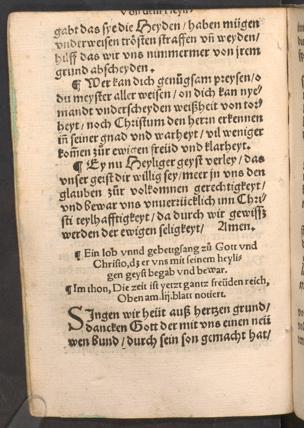 Von dem Heyli⸗
gabt das sye die Heyden / haben mügen
vnderweisen trösten straffen vñ weyden /
hilff das wir vns nummermer von jrem
grund abscheyden.
¶ Wer kan dich genůgsam preysen / o
du meyster aller weisen / on dich kan nye⸗
mandt vnderscheyden weißheit von tor⸗
heyt / noch Christum den herrn erkennen
iñ seiner gnad vnd warheyt / vil weniger
kom̃en zůr ewigen freüd vnd klarheyt.
¶ Ey nu Heyliger geyst verley / das
vnser geist dir willig sey / meer jn vns den
glauben zůr volkomnen gerechtigkeyt /
vnd bewar vns vnuerrücklich inn Chri⸗
sti teylhafftigkeyt / da durch wir gewissz
werden der ewigen seligkeyt / Amen.
¶ Ein lob vnnd gebettgsang zů Gott vnd
Christo, dz er vns mit seinem heyli⸗
gen geyst begab vnd bewar.
¶ Im thon, Die zeit ist yetzt gantz freüden reich,
Oben am .lij. blatt notiert.
SIngen wir heüt auß hertzen grund /
dancken Gott der mit vns einen neü
wen bund / durch sein son gemacht hat /